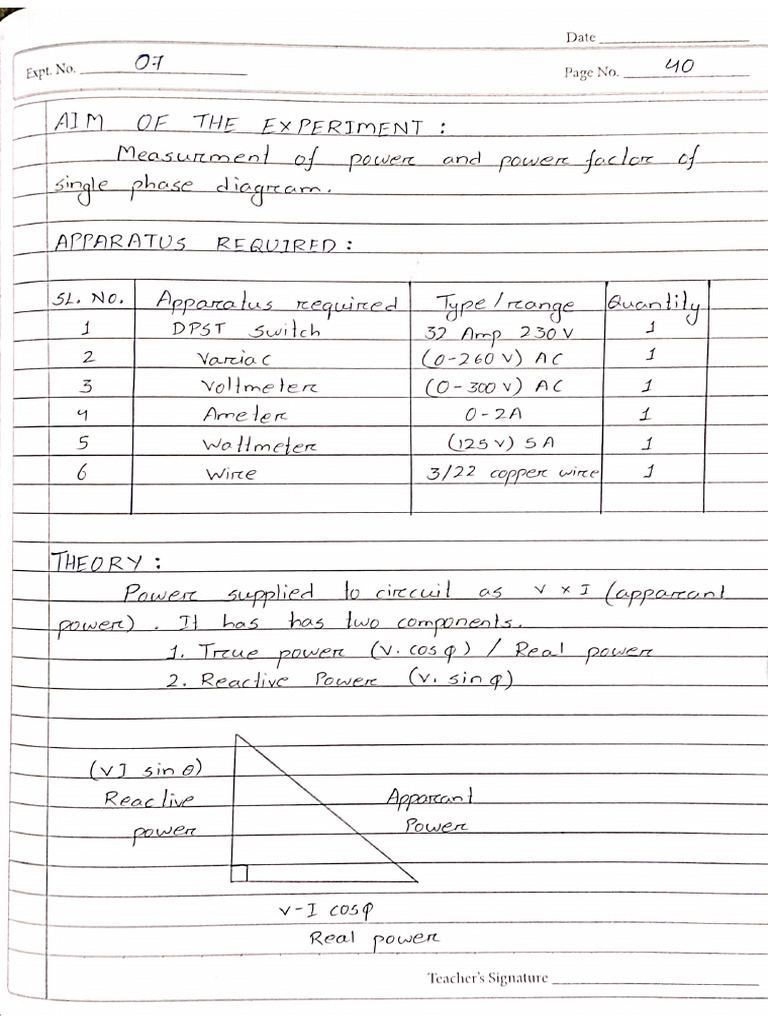 Date
Expt. No. 07
Page No. 40
AIM OF THE EXPERIMENT :
Measurment of power and power factor of
single phase diagram.
APPARATUS REQUIRED :
SL. NO. Apparatus required Type/range Quantity
1 DPST Switch 32 Amp 230 V 1
2 Variac (0-260 V) AC 1
3 Voltmeter (0-300 V) AC 1
4 Ameter 0-2A 1
5 Wattmeter (125 V) 5 A 1
6 Wire 3/22 copper wire 1
THEORY :
Power supplied to circuit as V x I (apparant
power). It has has two components.
1. True power (V. cos φ) / Real power
2. Reactive Power (V. sin φ)
(VI sin θ)
Reactive
power
Apparant
Power
V-I cos φ
Real power
Teacher's Signature